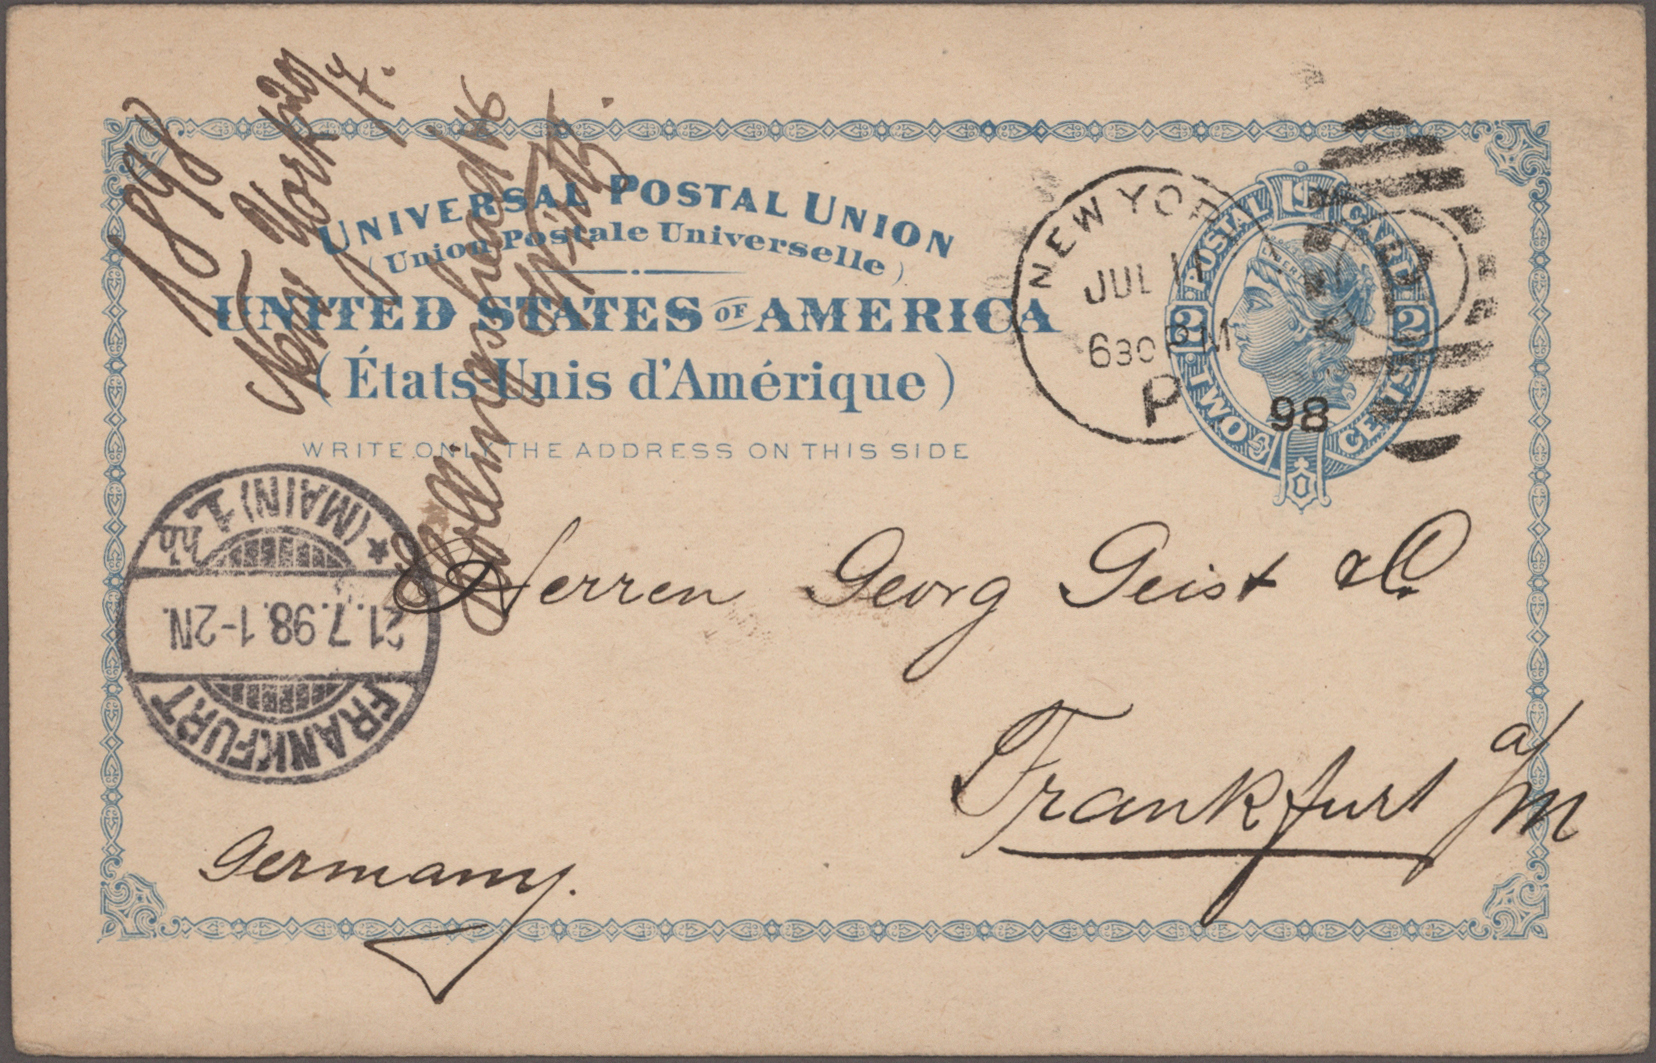 UNIVERSAL POSTAL UNION
(Union Postale Universelle)
UNITED STATES OF AMERICA
(États-Unis d'Amérique)
WRITE ONLY THE ADDRESS ON THIS SIDE
POSTAL CARD
2 2
TWO CENTS
NEW YORK
JUL
630 PM
P
98
1898
New York
Herren Georg Geist & Co
Frankfurt a/M
Germany.
FRANKFURT
21.7.98.1-2N.
* (MAIN) 1